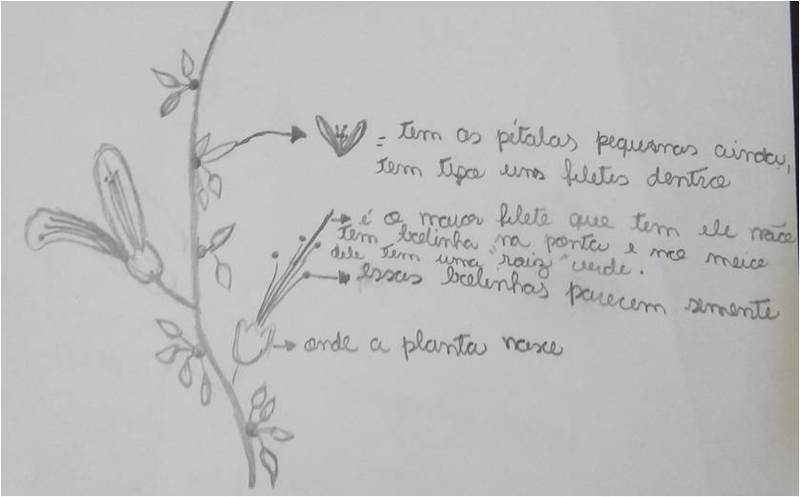 = tem as pétalas pequenas ainda,
tem tipo uns filetes dentro
é o maior filete que tem ele não
tem bolinha na ponta e no meio
dele tem uma "raiz" verde.
essas bolinhas parecem semente
onde a planta nasce